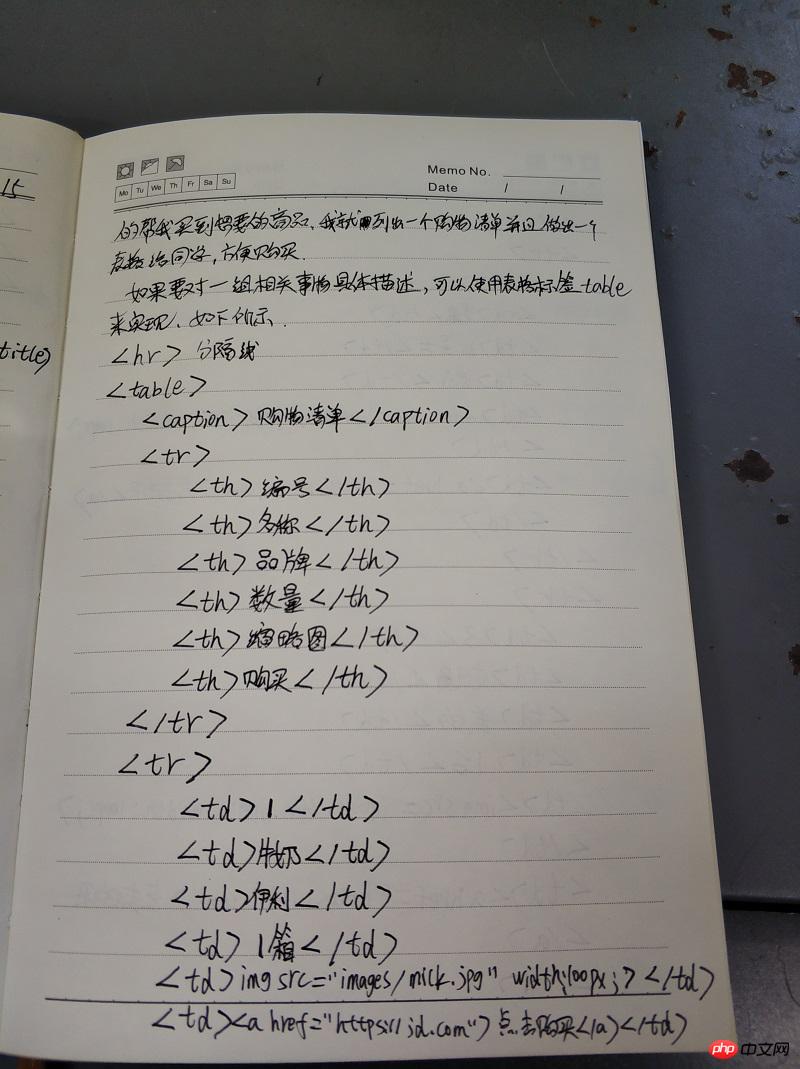 15
title>
Memo No.
Mo Tu We Th Fr Sa Su
Date / /
的帮我买到想要的商品,我就列出一个购物清单并且做出一个
表格给同学,方便购买.
如果要对一组相关事物具体描述,可以使用表格标签table
来实现,如下所示.
<hr> 分隔线
<table>
<caption>购物清单</caption>
<tr>
<th>编号</th>
<th>名称</th>
<th>品牌</th>
<th>数量</th>
<th>缩略图</th>
<th>购买</th>
</tr>
<tr>
<td>1</td>
<td>牛奶</td>
<td>伊利</td>
<td>1箱</td>
<td>img src="images/milk.jpg" width:100px;></td>
<td><a href="https://jd.com">点击购买</a></td>
php 中文网